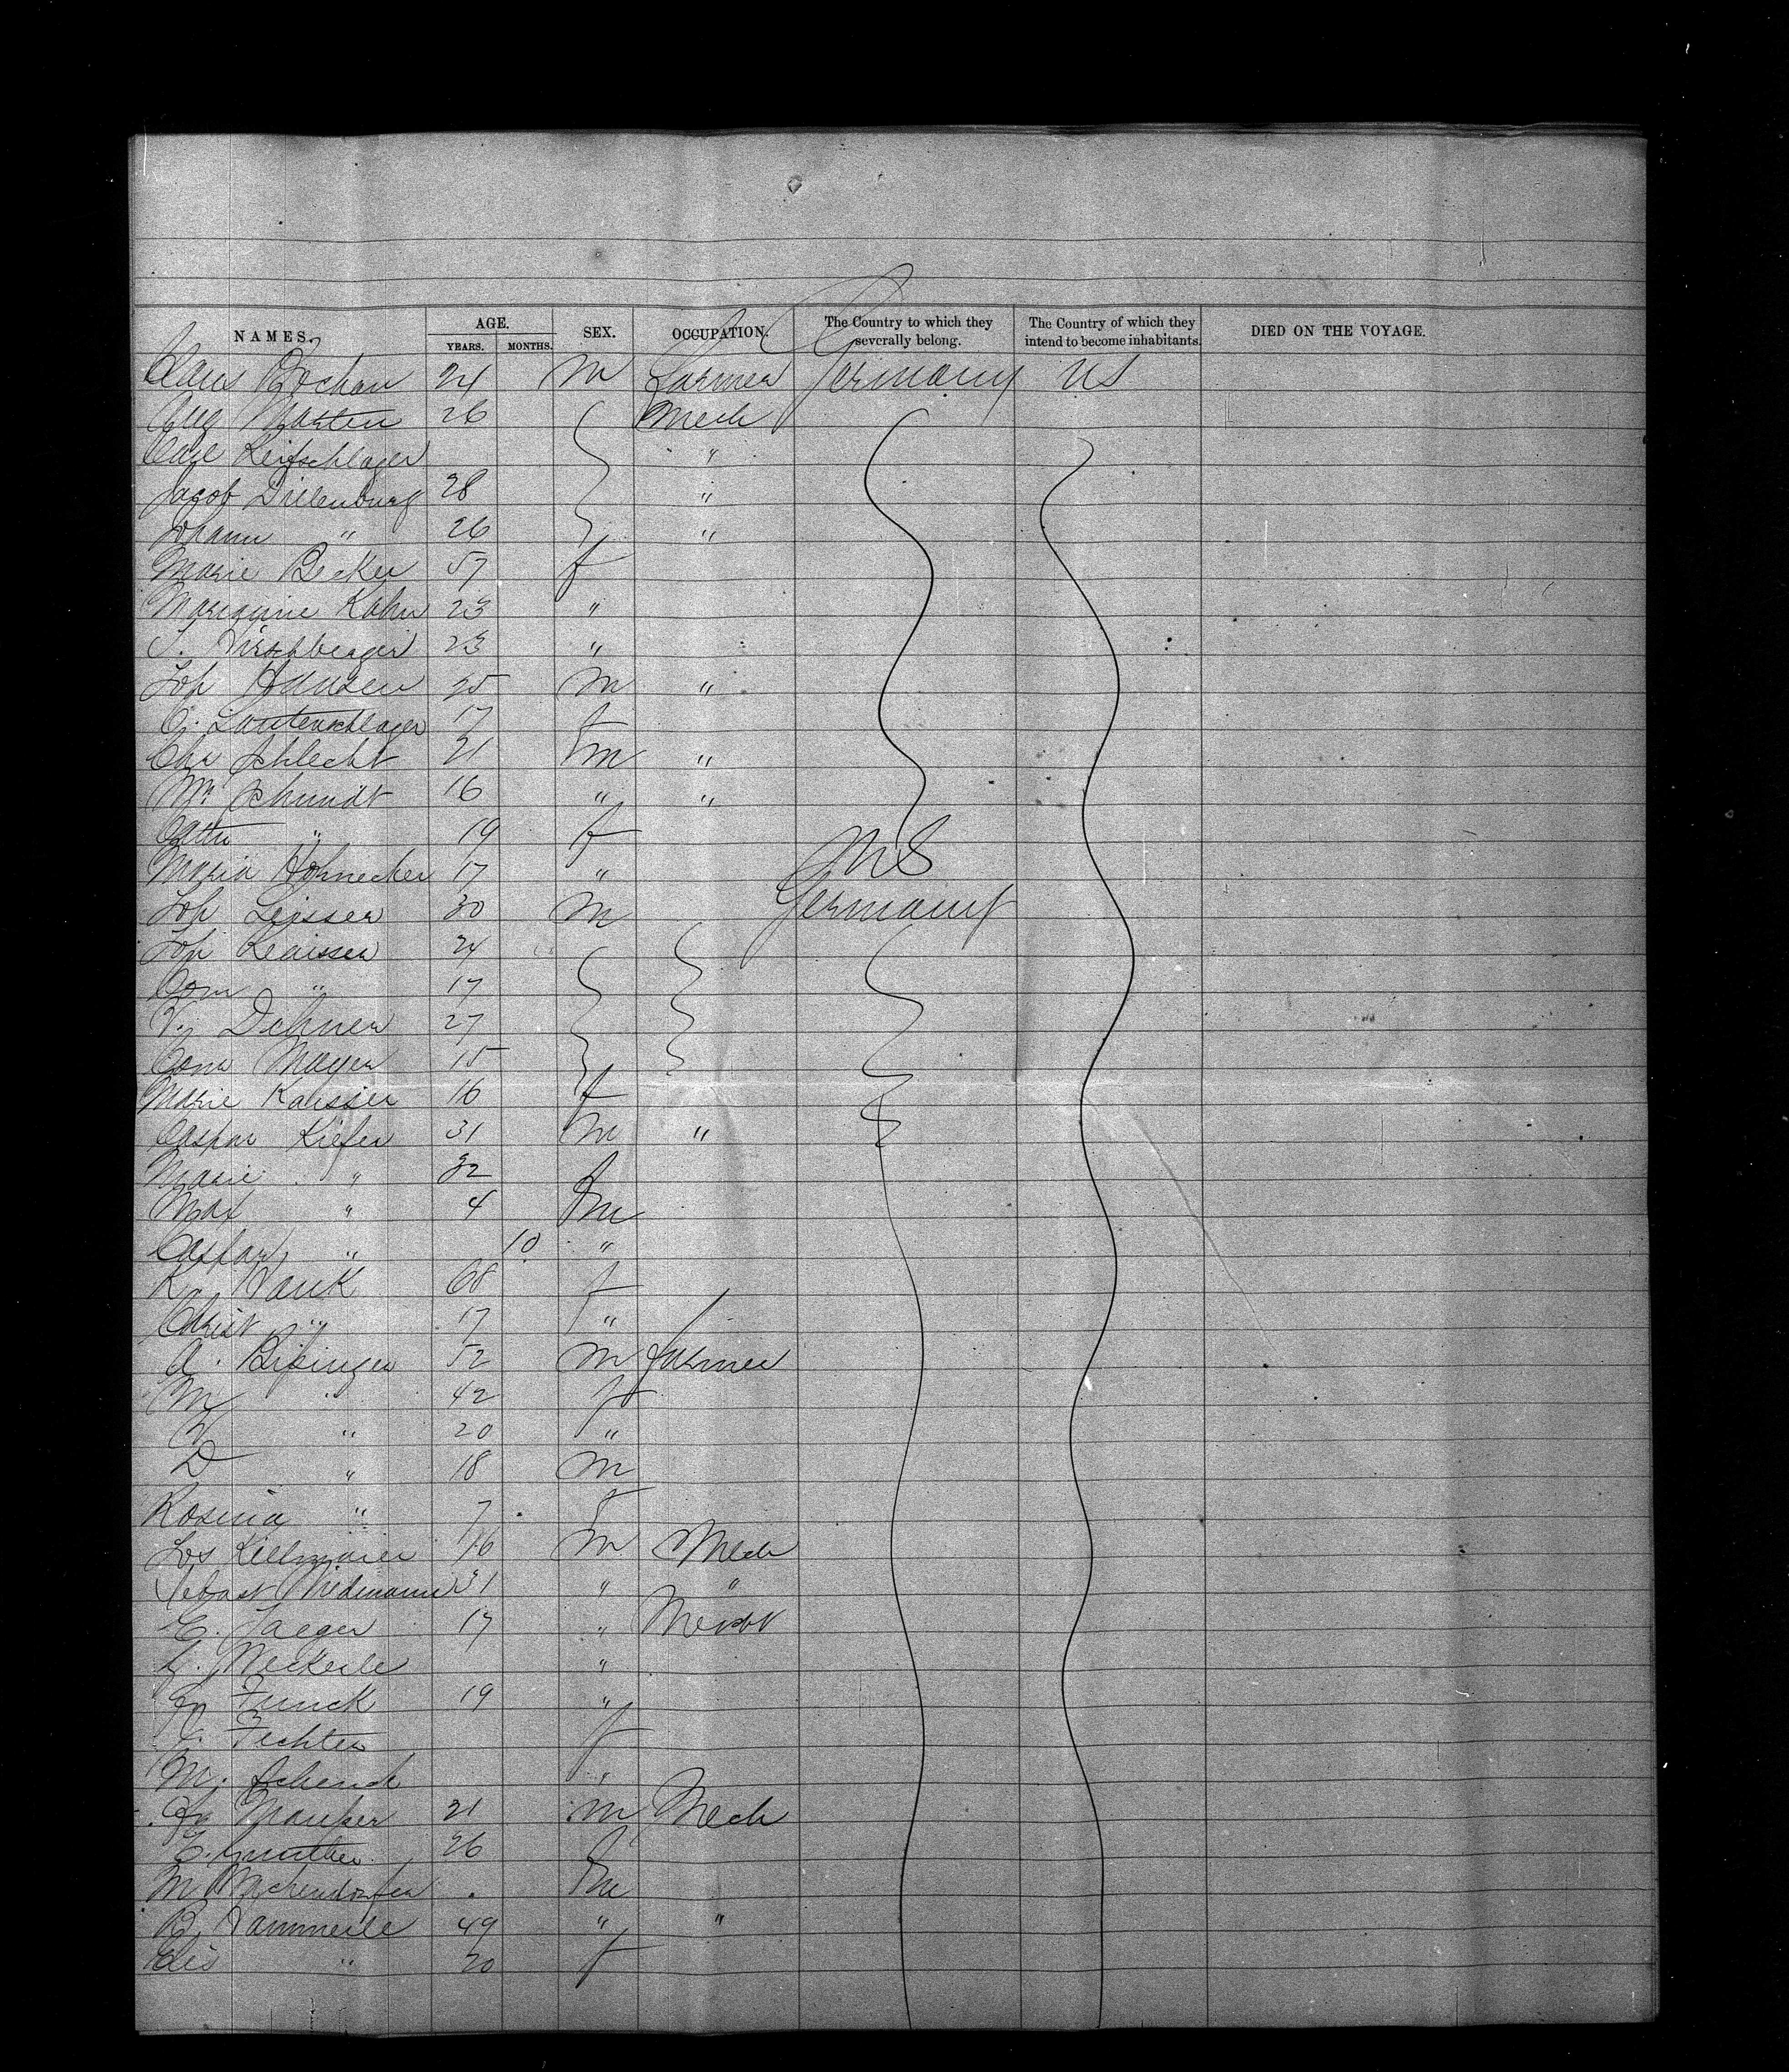 NAMES. AGE. YEARS. MONTHS. SEX. OCCUPATION. The Country to which they severally belong. The Country of which they intend to become inhabitants. DIED ON THE VOYAGE.
Claus 24 m Farmer Germany US
Aug Marten 26 Mech
Carl Leifschlager "
Jacob Dillenburg 28 "
Johann " 26 "
Marie Becker 57 f
Kahn 23 "
S. Hirschberger 23 "
Joh Hansen 25 m "
C. Lautenschlager 17 f
Chr Schlecht 21 m "
Wm Schmidt 16 " "
Cath " 19 f
Maria Hohnecker 17 " US
Joh Leisser 30 m Germany
Joh 24
" 17
V. Dehner 27
Mayer 15
Marie Kaisser 16 f
Caspar Kiefer 31 m "
Marie " 32 f
Max " 4 m
Caspar " 10 "
K. Hauk 68 f
Christ " 17 "
A. Bisinger 52 m Farmer
M " 42 f
" 20 "
D " 18 m
Rosina " 7 f
Jos Kellmaier 16 m Mech
Sebast Widmann 31 " "
E. Jaeger 17 " Mercht
Weckerle "
Funck 19 "
Fechter f
M. Schenck "
21 m Mech
E. Gunther 26 f
M m
B. Hammerle 49 " "
Elis " 20 f